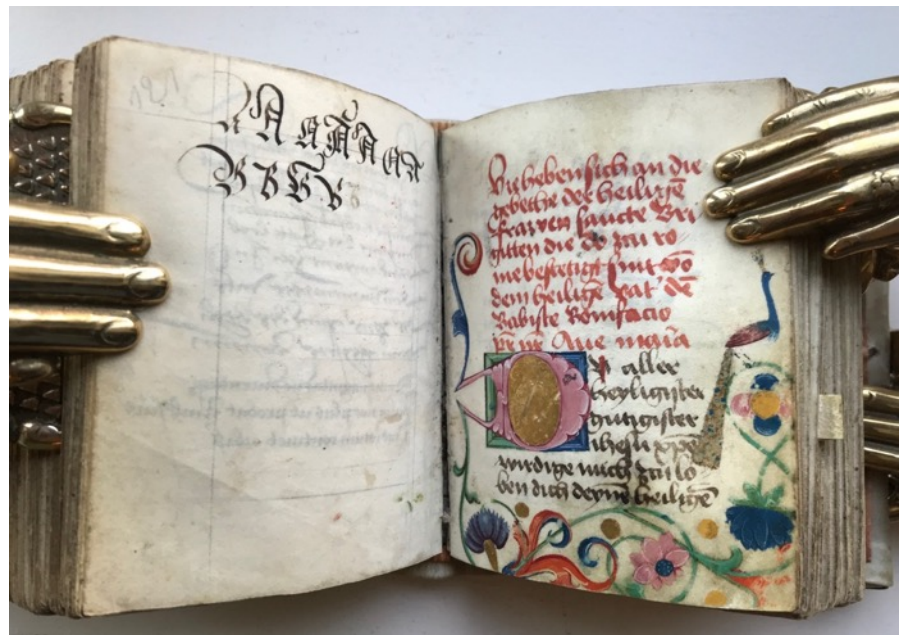 121
A A A A A A A
B B B B
Hie heben sich an die
gebethe der heiligē
frawen sancte Bri
gitten die do zcu ro
me bestetigt sint vō
dem heiligē vat' dē
Babiste Bonifacio
pr̄ nr̄ Aue maria
O aller
heyligister
gutigister
ihesu xp̄e
wirdige mich zcu lo
ben dich deynē heiligē